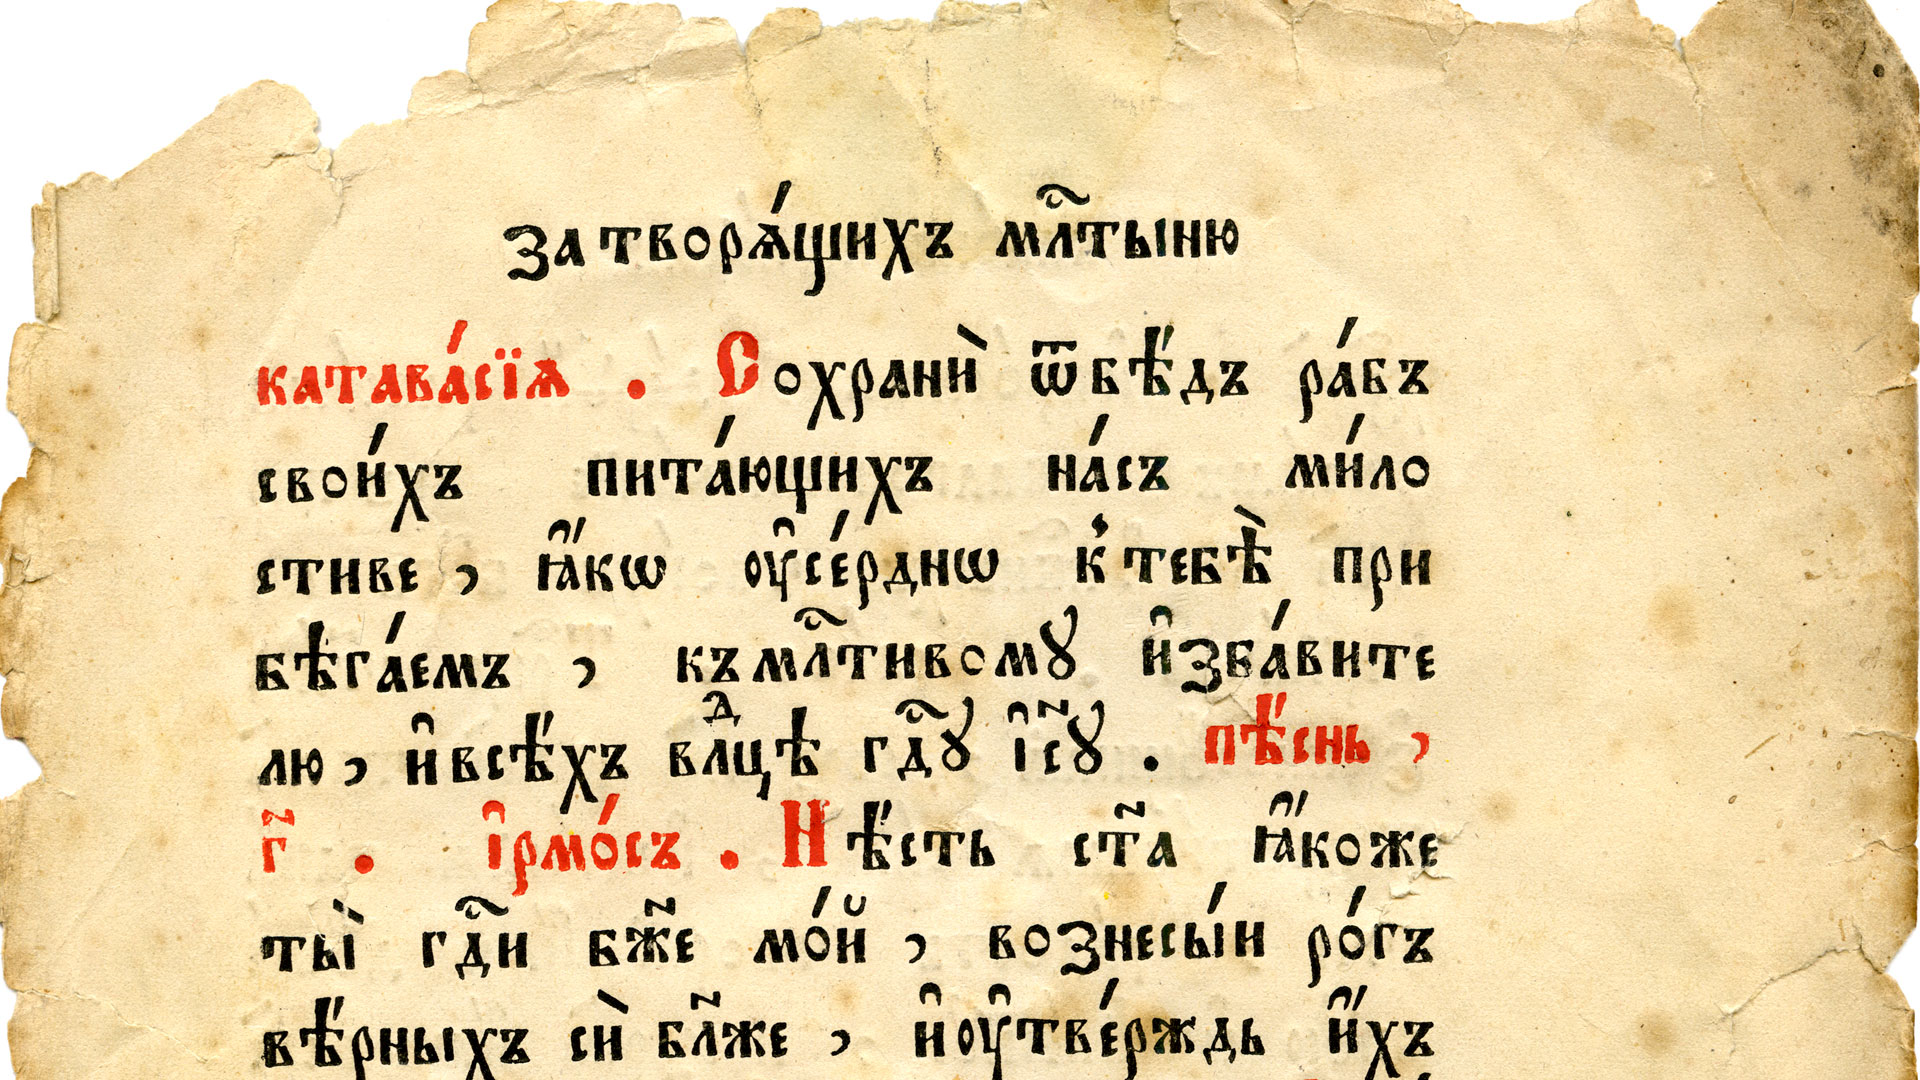 затворѧ́щихъ мл҇тыню
катава́сїѧ . Сохранѝ ѿбѣ́дъ ра́бъ
свои́хъ пита́ющихъ на́съ ми́ло
стиве , ꙗ҆́кѡ ᲂу҆се́рднѡ к̾тебѣ̀ при
бѣга́емъ , къмл҇тивомꙋ и҆зба́вите
лю , и҆всѣ́хъ влⷣцѣ гд҇ꙋ і҆с҃ꙋ . пѣ́снь ,
г҃ . і҆рмо́съ . Нѣ́сть ст҃а ꙗ҆́коже
ты̀ гд҇и бж҃е мо́й , вознесы́и ро́гъ
вѣ́рныхъ сѝ бл҃же , и҆ᲂу҆тве́рждь и҆́хъ